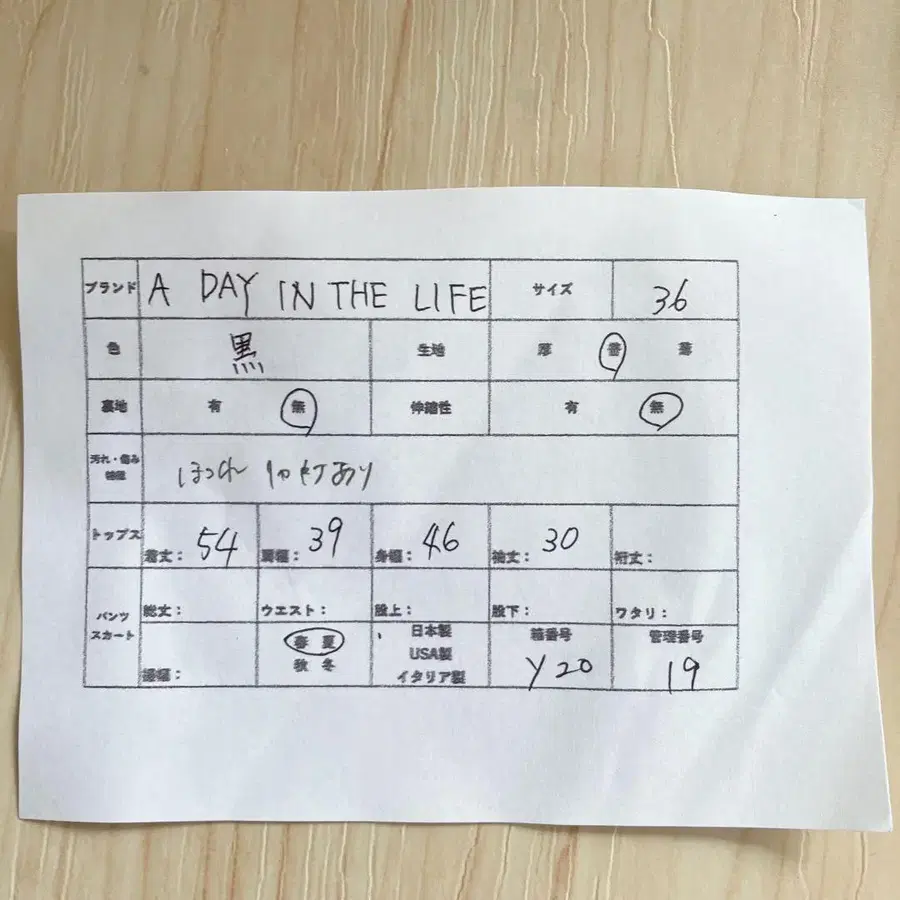 ブランド A DAY IN THE LIFE サイズ 36
色 黒 生地 厚 普 薄
裏地 有 無 伸縮性 有 無
汚れ・傷み
ほつれ あり
トップス 着丈: 54 肩幅: 39 身幅: 46 袖丈: 30 裄丈:
パンツ スカート 総丈: ウエスト: 股上: 股下: ワタリ:
裾幅: 春 夏 日本製 箱番号 管理番号
秋 冬 USA製 Y20 19
イタリア製